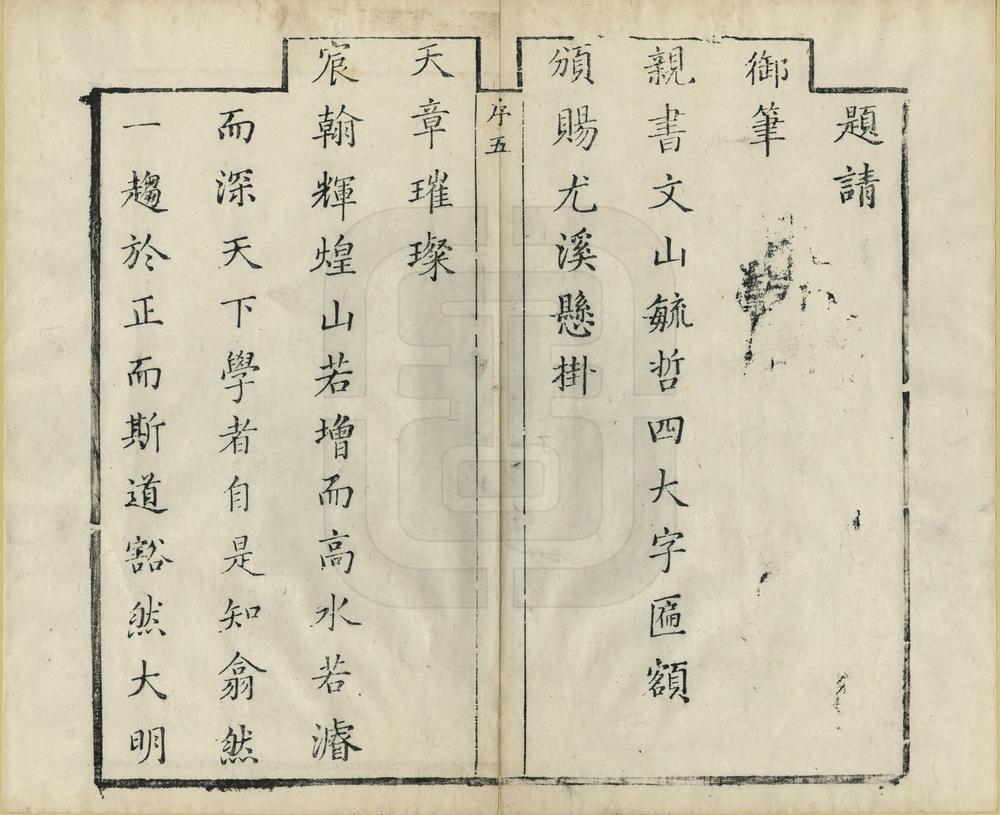 題請
御筆
親書文山毓哲四大字匾額
頒賜尤溪懸掛
序五
天章璀璨
宸翰輝煌山若增而高水若濬
而深天下學者自是知翕然
一趨於正而斯道豁然大明